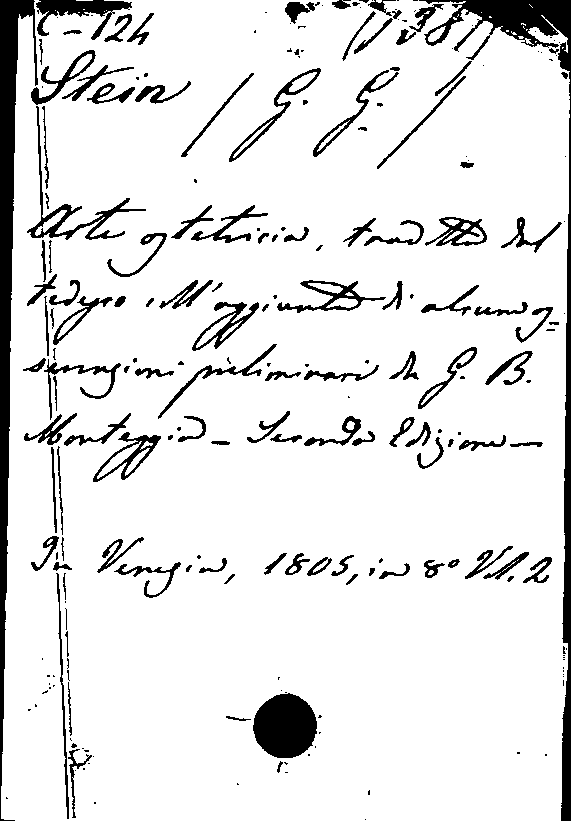 C-124 (1381)
Stein / G. G. /
Arte ostetricia, tradotta dal
tedesco coll'aggiunta di alcune os=
servazioni preliminari da G. B.
Monteggia - Seconda Edizione -
In Venezia, 1805, in 8º Vol. 2